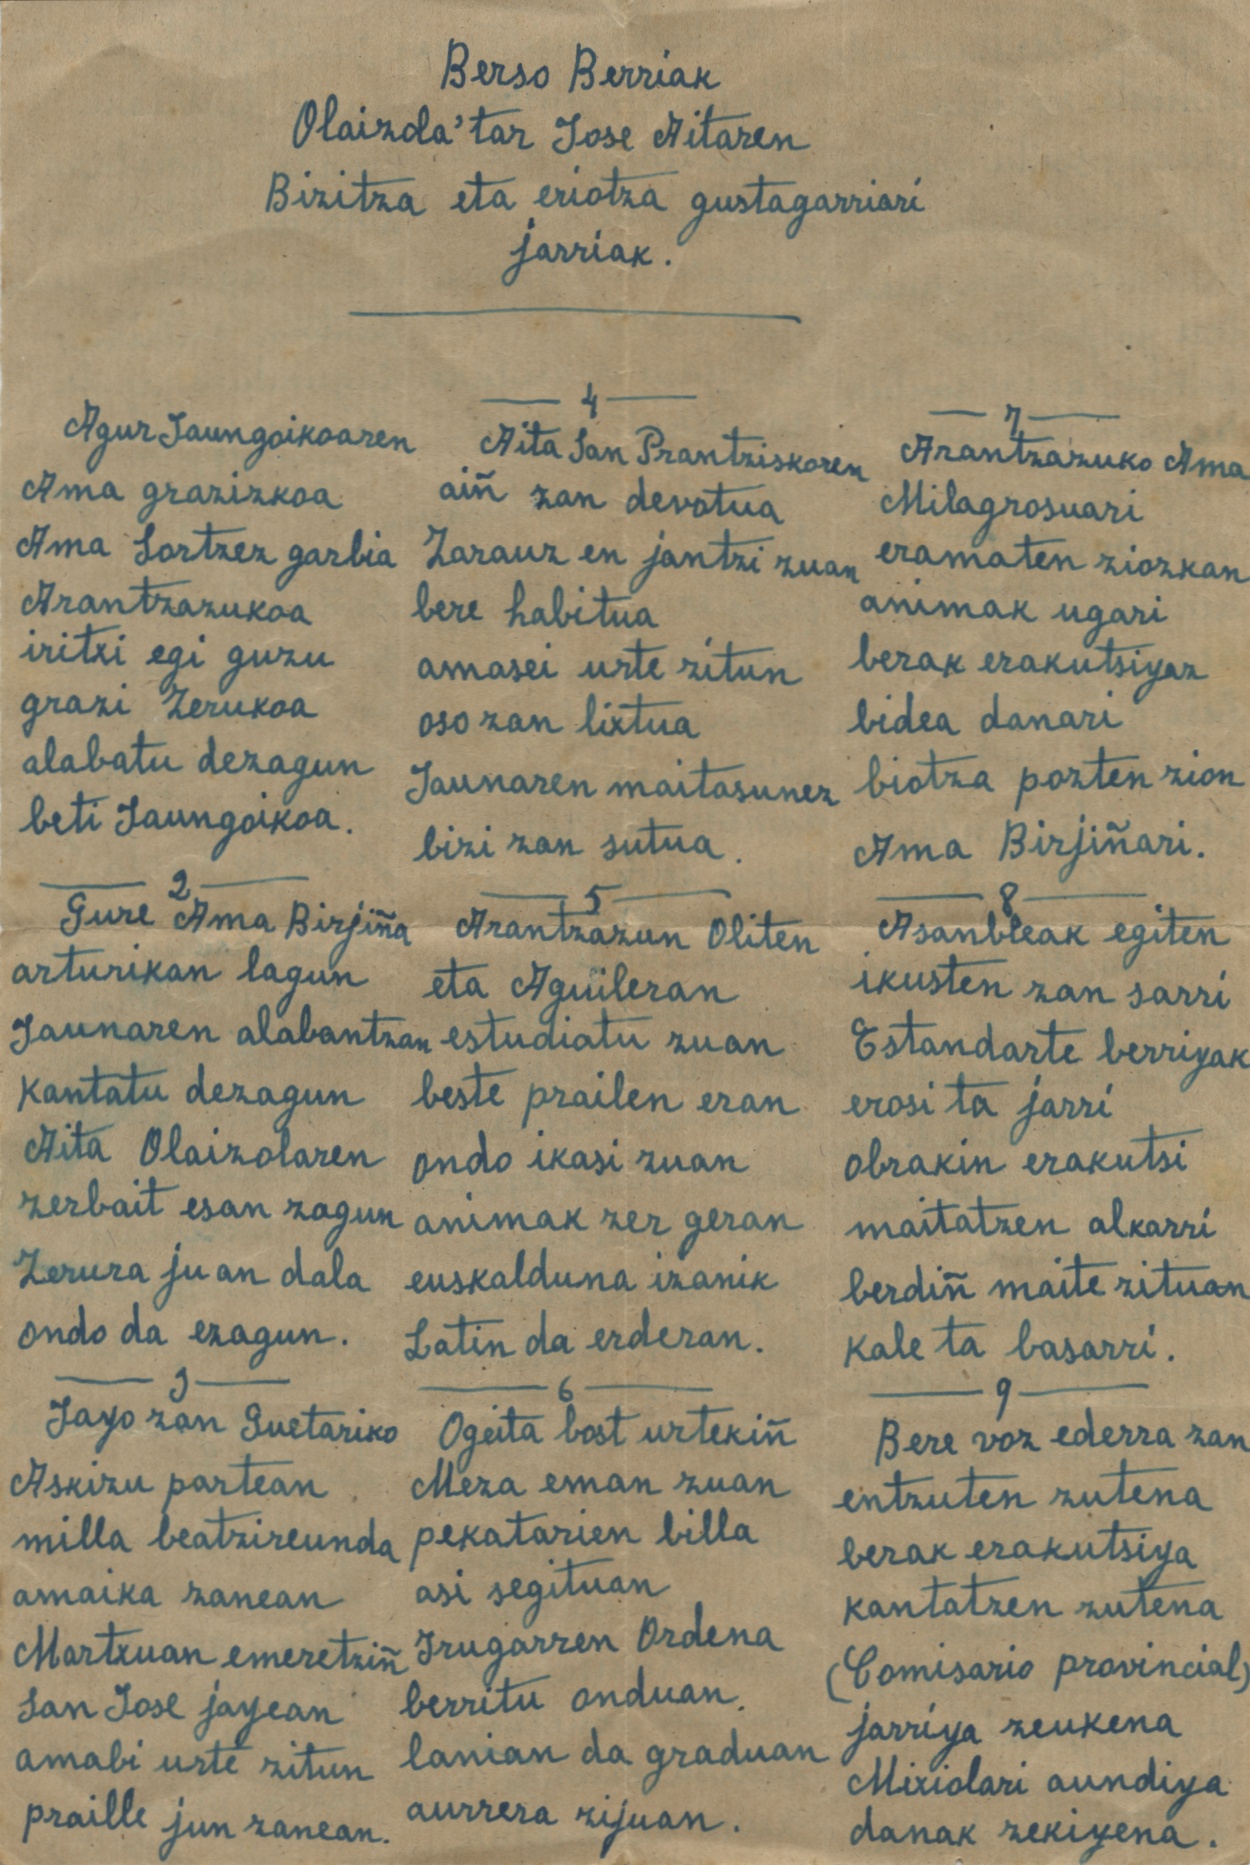 Berso Berriak
Olaizola'tar Jose Aitaren
Bizitza eta eriotza gustagarriari
jarriak.
Agur Jaungoikoaren
Ama grazizkoa
Ama Sortzez garbia
Arantzazukoa
iritxi egi guzu
grazi Zerukoa
alabatu dezagun
beti Jaungoikoa.
2
Gure Ama Birjiña
arturikan lagun
Jaunaren alabantzan
Kantatu dezagun
Aita Olaizolaren
zerbait esan zagun
Zerura juan dala
ondo da ezagun.
3
Jayo zan Guetariko
Askizu partean
milla beatzireunda
amaika zanean
Martxuan emeretziñ
San Jose jayean
amabi urte zitun
praille jun zanean.
4
Aita San Prantziskoren
aiñ zan devotua
Zarauz en jantzi zuan
bere habitua
amasei urte zitun
oso zan lixtua
Jaunaren maitasunez
bizi zan sutua.
5
Arantzazun Oliten
eta Aguileran
estudiatu zuan
beste prailen eran
ondo ikasi zuan
animak zer geran
euskalduna izanik
Latin da erderan.
6
Ogeita bost urtekiñ
Meza eman zuan
pekatarien billa
asi segituan
Irugarren Ordena
berritu onduan.
lanian da graduan
aurrera zijuan.
7
Arantzazuko Ama
Milagrosuari
eramaten ziozkan
animak ugari
berak erakutsiyaz
bidea danari
biotza pozten zion
Ama Birjiñari.
8
Asanbleak egiten
ikusten zan sarri
Estandarte berriyak
erosi ta jarri
obrakin erakutsi
maitatzen alkarri
berdiñ maite zituan
kale ta basarri.
9
Bere voz ederra zan
entzuten zutena
berak erakutsiya
kantatzen zutena
(Comisario provincial)
jarriya zeukena
Mixiolari aundiya
danak zekiyena.